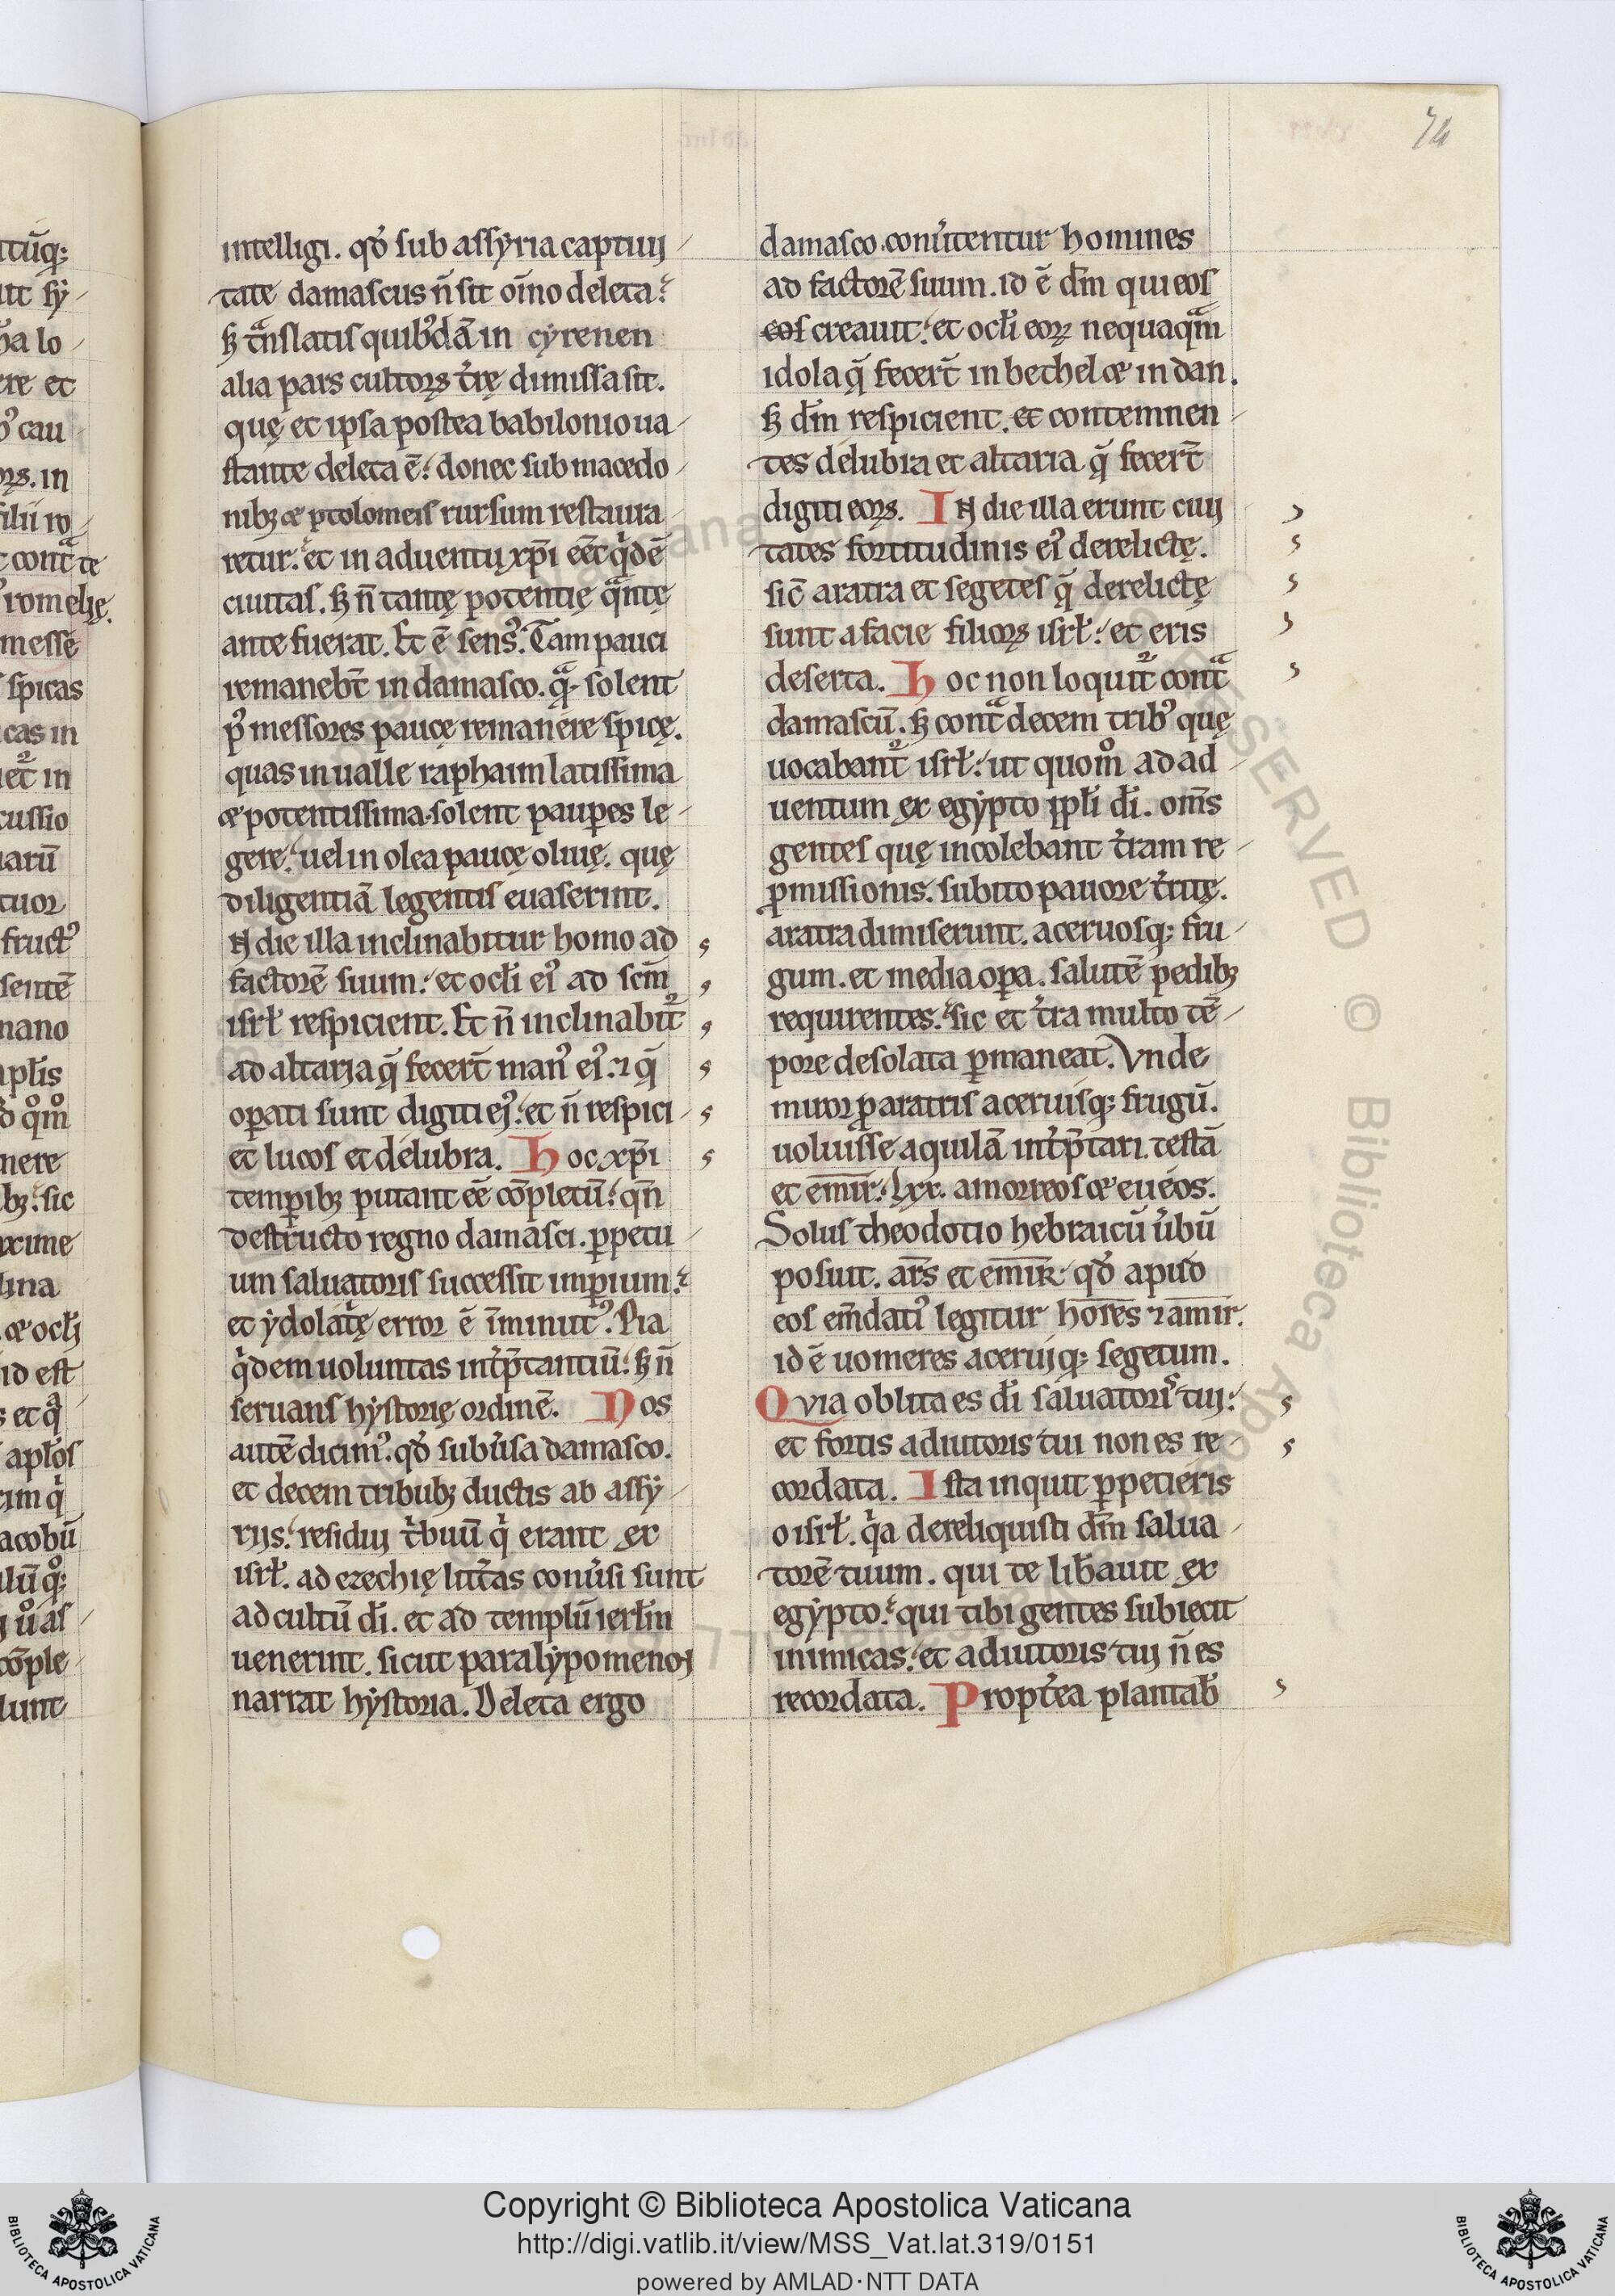 74
intelligi. qd̾ sub assyria captiuj
tate damascus n̄ sit oīno deleta.
sꝫ tͣnslatis quibꝰdā in cyrenen
alia pars cultorꝝ t̾rę dimissa sit.
quę et ipsa postea babilonio ua
stante deleta ē. donec sub macedo
nibꝫ & ptolomeis rursum restaura
retur. et in aduentu xp̄i eēt qͥdē
ciuitas. sꝫ n̄ tantę potentię qͣntę
ante fuerat. Et ē sensꝰ. Tam pauci
remanebt̄ in damasco. qͣ solent
p̾ messores paucę remanere spicę.
quas in ualle raphaim latissima
& potentissima. solent paup̲es le
gere. uel in olea paucę oliuę. quę
diligentiā legentis euaserint.
N die illa inclinabitur homo ad
factorē suum. et ocłi eiꝰ ad scm̄
isrł respicient. Et n̄ inclinabit᷑
ad altaria q̄ fecert̄ manꝰ eiꝰ. ⁊ q̄
oꝑati sunt digiti ejꝰ. et n̄ respici
et lucos et delubra. Hoc xp̄i
temꝑibꝫ putant eē cōpletū. qn̄
destructo regno damasci. ꝑpetu
um saluatoris successit imꝑium.
et ydolatͥę error ē īminutꝰ. Pia
qͥdem uoluntas int̾p̄tantiū. sꝫ n̄
seruans hystorię ordinē. Nos
autē dicimꝰ. qd̾ subu̾sa damasco.
et decem tribubꝫ ductis ab assy
rijs. residui tͥbuū qͥ erant ex
isrł. ad ezechię litt̾as conu̾si sunt
ad cultū dı̄. et ad templū ierłm
uenerint. sicut paralypomenon
narrat hystoria. Deleta ergo
damasco. conu̾tentur homines
ad factorē suum. id ē dn̄m qui eos
eos creauit. et ocłi eorꝝ nequaqͣm
idola q̄ fecert̄ in bethel & in dan.
sꝫ dn̄m respicient. et contemnen
tes delubra et altaria q̄ fecert̄
digiti eorꝝ. IN die illa erunt ciuj
tates fortitudinis eiꝰ derelictę.
sic̄ aratra et segetes q̄ derelictę
sunt a facie filiorꝝ isrł. et eris
deserta. Hoc non loquit᷑ contͣ
damascū. sꝫ contͣ decem tribꝰ quę
uocabant᷑ isrł. ut quomͦ ad ad
uentum ex egypto ppłi dı̄. om̄s
gentes quę incolebant t̾ram re
ꝓmissionis. subito pauore t̾ritę.
aratra dimiserunt. aceruosqꝫ fru
gum. et media oꝑa. salutē pedibꝫ
requirentes. sic et t̾ra multo tē
pore desolata ꝑmaneat. Vnde
miror ꝓ aratris aceruisqꝫ frugū.
uoluisse aquilā int̾p̄tari. testā
et emir. lxx. amorreos & eueos.
Solus theodotio hebraicū u̾bū
posuit. ars et emir. qd̾ apud
eos em̄datiꝰ legitur hores ⁊ amir.
id ē uomeres aceruiqꝫ segetum.
Quia oblita es dı̄ saluatoris tuj.
et fortis adiutoris tui non es re
cordata. Ista inquit ꝑpetieris
o isrł. qͥa dereliquisti dn̄m salua
torē tuum. qui te lib̾auit ex
egypto. qui tibi gentes subiecit
inimicas. et adiutoris tuj n̄ es
recordata. Propt̾ea plantab̾
Copyright © Biblioteca Apostolica Vaticana
http://digi.vatlib.it/view/MSS_Vat.lat.319/0151
powered by AMLAD·NTT DATA